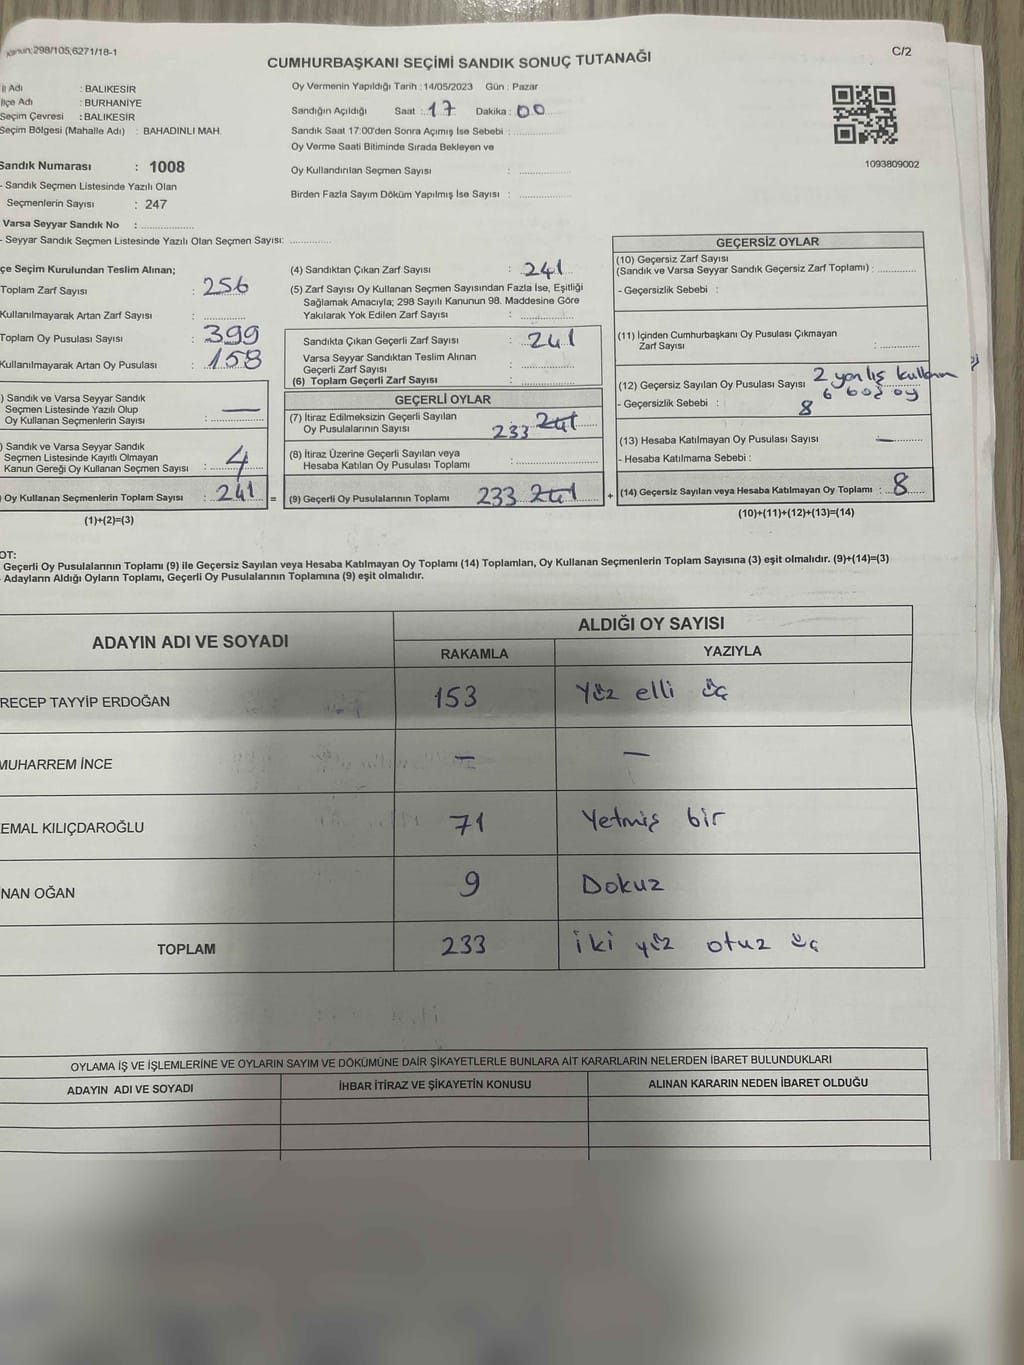 Kanun:298/105,6271/18-1
C/2
CUMHURBAŞKANI SEÇİMİ SANDIK SONUÇ TUTANAĞI
İl Adı : BALIKESİR
İlçe Adı : BURHANİYE
Seçim Çevresi : BALIKESİR
Seçim Bölgesi (Mahalle Adı) : BAHADINLI MAH.
Sandık Numarası : 1008
- Sandık Seçmen Listesinde Yazılı Olan
Seçmenlerin Sayısı : 247
Varsa Seyyar Sandık No :
- Seyyar Sandık Seçmen Listesinde Yazılı Olan Seçmen Sayısı:
Oy Vermenin Yapıldığı Tarih : 14/05/2023 Gün : Pazar
Sandığın Açıldığı Saat : 17 Dakika : 00
Sandık Saat 17:00'den Sonra Açımış İse Sebebi :
Oy Verme Saati Bitiminde Sırada Bekleyen ve
Oy Kullandırılan Seçmen Sayısı :
Birden Fazla Sayım Döküm Yapılmış İse Sayısı :
1093809002
çe Seçim Kurulundan Teslim Alınan;
Toplam Zarf Sayısı : 256
Kullanılmayarak Artan Zarf Sayısı :
Toplam Oy Pusulası Sayısı : 399
Kullanılmayarak Artan Oy Pusulası : 158
) Sandık ve Varsa Seyyar Sandık
Seçmen Listesinde Yazılı Olup
Oy Kullanan Seçmenlerin Sayısı : —
) Sandık ve Varsa Seyyar Sandık
Seçmen Listesinde Kayıtlı Olmayan
Kanun Gereği Oy Kullanan Seçmen Sayısı : 4
) Oy Kullanan Seçmenlerin Toplam Sayısı : 241 =
(1)+(2)=(3)
(4) Sandıktan Çıkan Zarf Sayısı : 241
(5) Zarf Sayısı Oy Kullanan Seçmen Sayısından Fazla İse, Eşitliği
Sağlamak Amacıyla; 298 Sayılı Kanunun 98. Maddesine Göre
Yakılarak Yok Edilen Zarf Sayısı :
Sandıkta Çıkan Geçerli Zarf Sayısı : 241
Varsa Seyyar Sandıktan Teslim Alınan
Geçerli Zarf Sayısı :
(6) Toplam Geçerli Zarf Sayısı :
GEÇERLİ OYLAR
(7) İtiraz Edilmeksizin Geçerli Sayılan
Oy Pusulalarının Sayısı 233 241
(8) İtiraz Üzerine Geçerli Sayılan veya
Hesaba Katılan Oy Pusulası Toplamı :
(9) Geçerli Oy Pusulalarının Toplamı 233 241 +
GEÇERSİZ OYLAR
(10) Geçersiz Zarf Sayısı
(Sandık ve Varsa Seyyar Sandık Geçersiz Zarf Toplamı) :
- Geçersizlik Sebebi :
(11) İçinden Cumhurbaşkanı Oy Pusulası Çıkmayan
Zarf Sayısı :
(12) Geçersiz Sayılan Oy Pusulası Sayısı 2 yanlış kullanım
- Geçersizlik Sebebi : 6 boş oy
8
(13) Hesaba Katılmayan Oy Pusulası Sayısı : —
- Hesaba Katılmama Sebebi :
(14) Geçersiz Sayılan veya Hesaba Katılmayan Oy Toplamı : 8
(10)+(11)+(12)+(13)=(14)
OT:
Geçerli Oy Pusulalarının Toplamı (9) ile Geçersiz Sayılan veya Hesaba Katılmayan Oy Toplamı (14) Toplamları, Oy Kullanan Seçmenlerin Toplam Sayısına (3) eşit olmalıdır. (9)+(14)=(3)
Adayların Aldığı Oyların Toplamı, Geçerli Oy Pusulalarının Toplamına (9) eşit olmalıdır.
ADAYIN ADI VE SOYADI
ALDIĞI OY SAYISI
RAKAMLA YAZIYLA
RECEP TAYYİP ERDOĞAN 153 Yüz elli üç
MUHARREM İNCE — —
EMAL KILIÇDAROĞLU 71 Yetmiş bir
NAN OĞAN 9 Dokuz
TOPLAM 233 iki yüz otuz üç
OYLAMA İŞ VE İŞLEMLERİNE VE OYLARIN SAYIM VE DÖKÜMÜNE DAİR ŞİKAYETLERLE BUNLARA AİT KARARLARIN NELERDEN İBARET BULUNDUKLARI
ADAYIN ADI VE SOYADI İHBAR İTİRAZ VE ŞİKAYETİN KONUSU ALINAN KARARIN NEDEN İBARET OLDUĞU